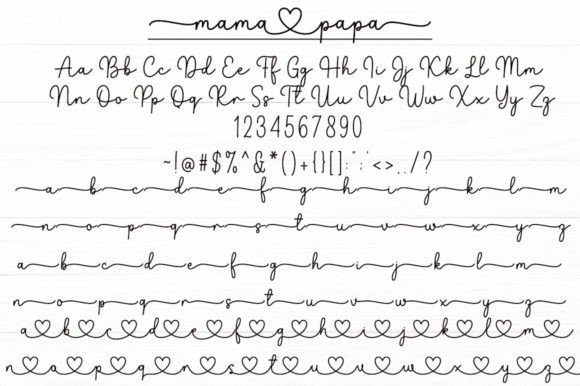 mama papa
Aa Bb Cc Dd Ee Ff Gg Hh Ii Jj Kk Ll Mm
Nn Oo Pp Qq Rr Ss Tt Uu Vv Ww Xx Yy Zz
1234567890
~!@#$%^&*()+{}[]:";'<>,./?
a b c d e f g h i j k l m
n o p q r s t u v w x y z
a b c d e f g h i j k l m
n o p q r s t u v w x y z
a b c d e f g h i j k l m
n o p q r s t u v w x y z